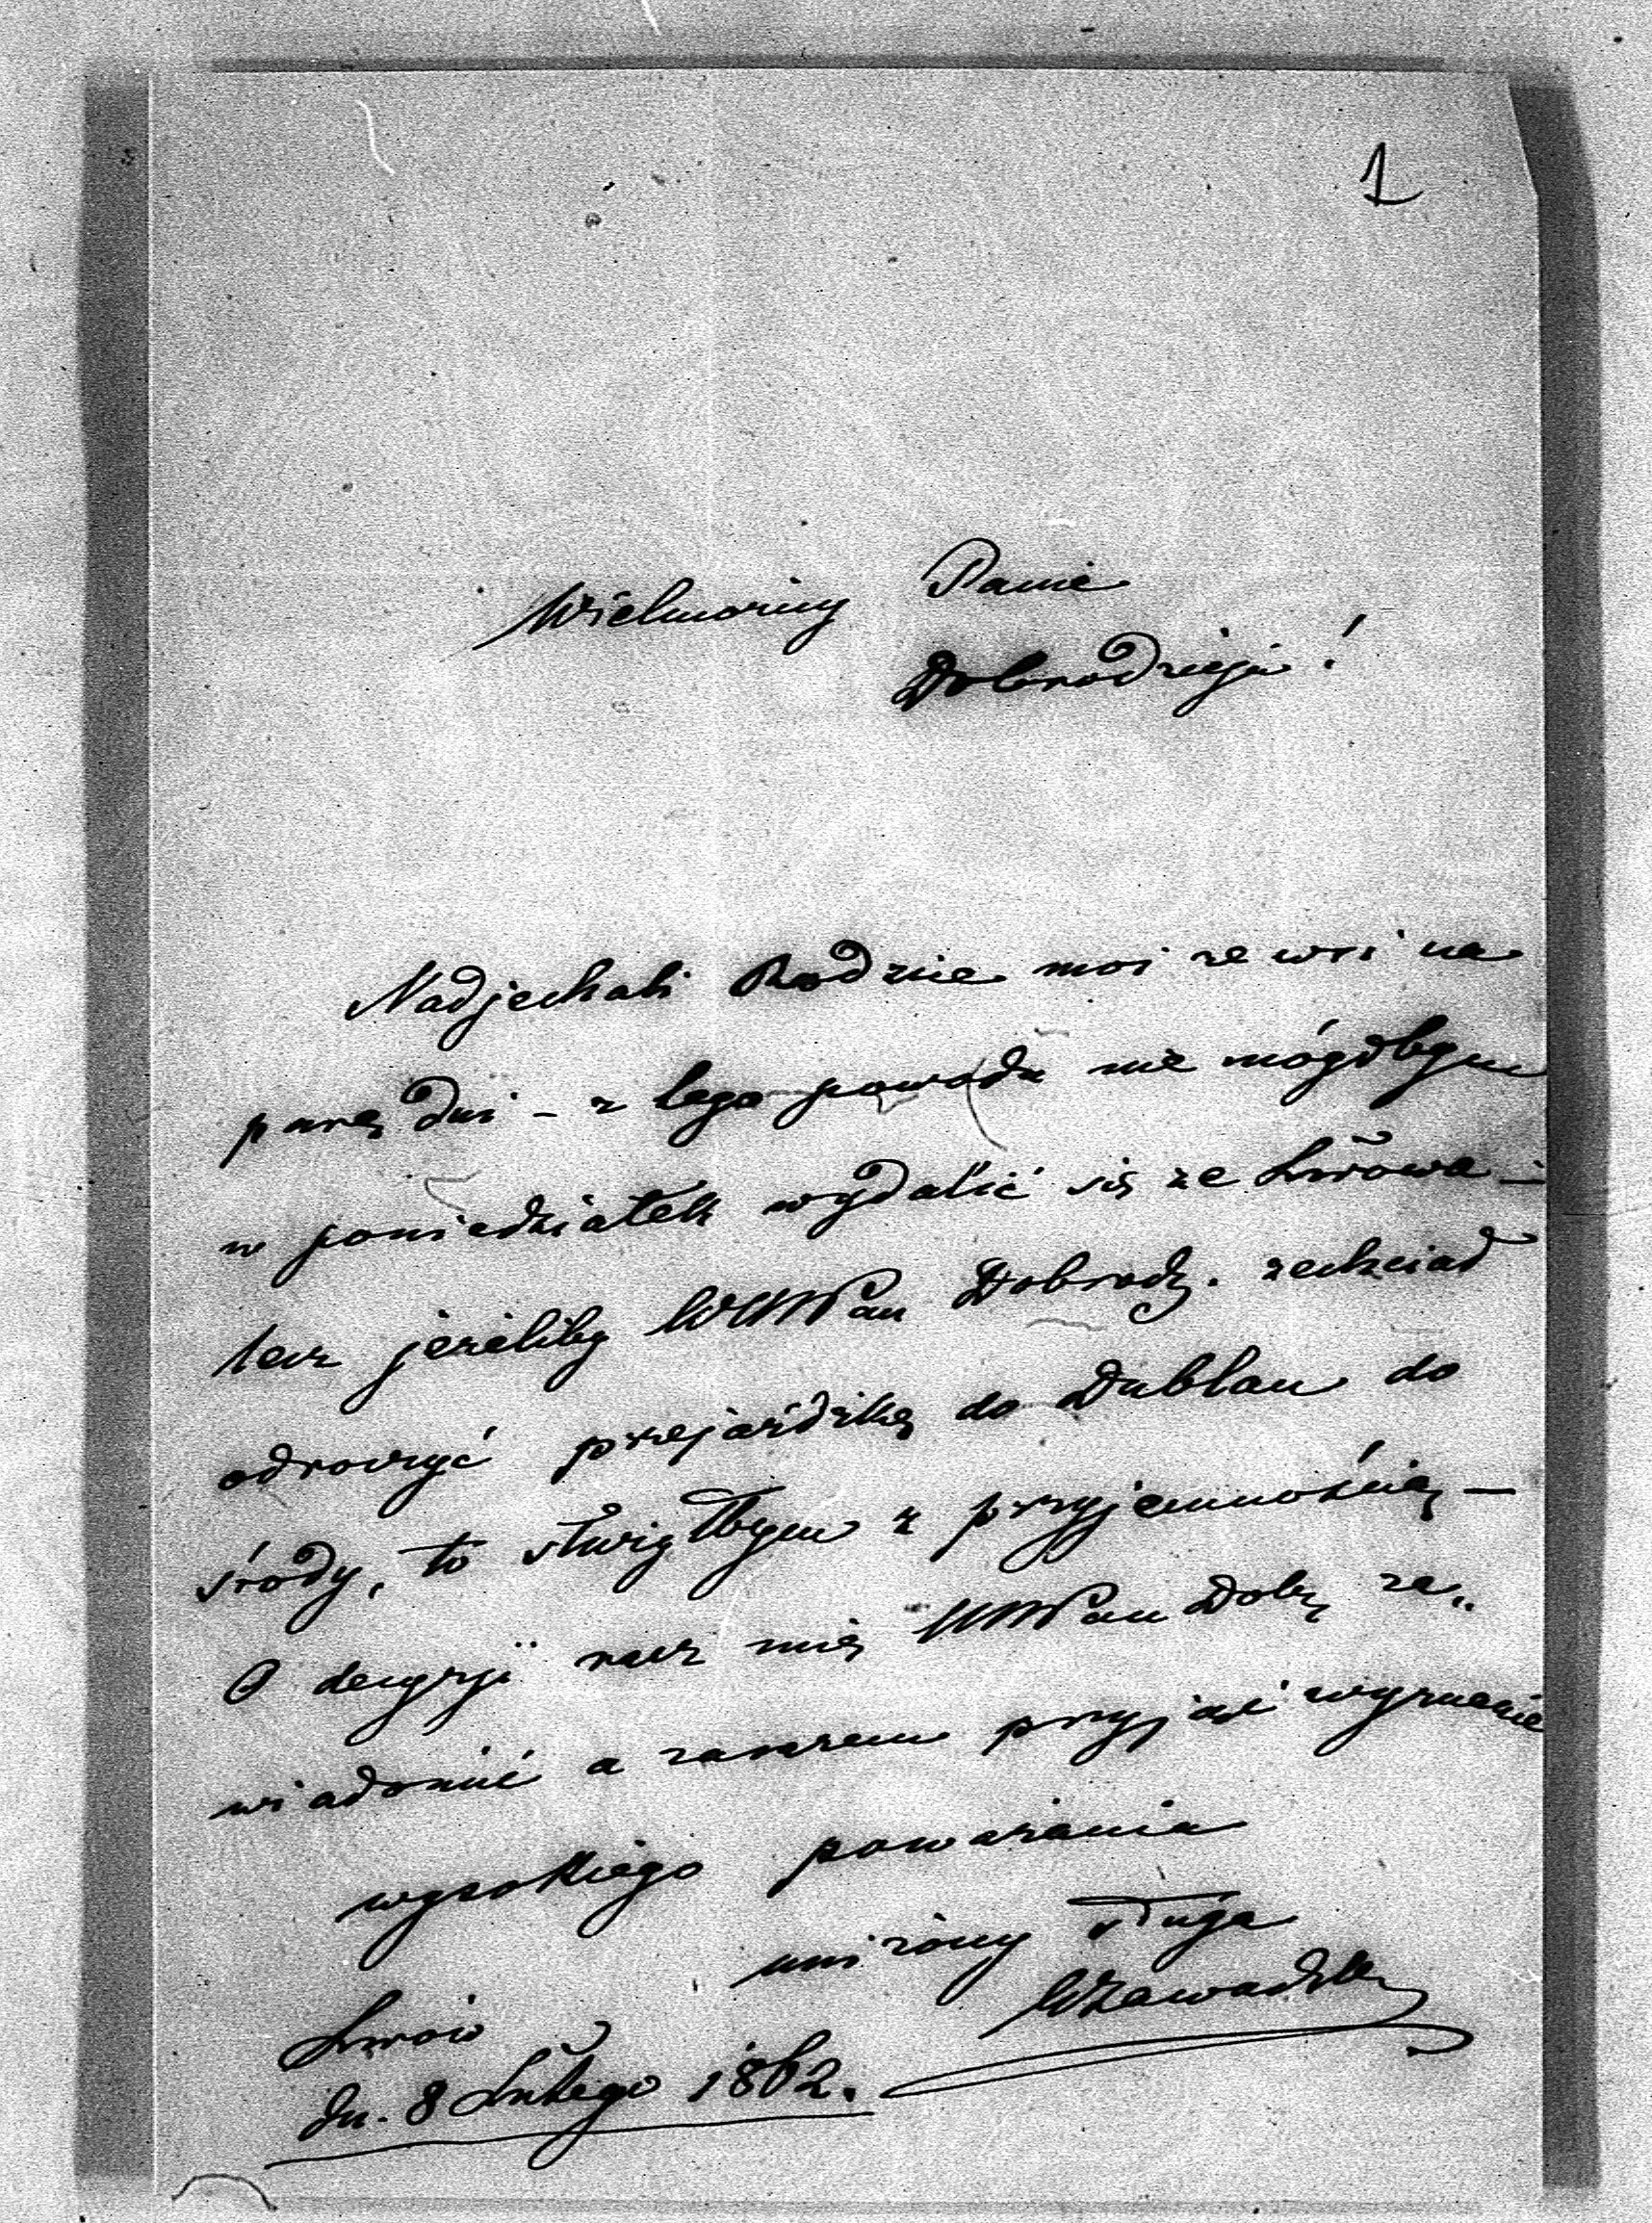 1
Wielmożny Panie
Dobrodzieju!
Nadjechali Rodzice moi ze wsi na
parę dni – z tego powodu nie mógłbym
w poniedziałek wydalić się ze Lwowa –
lecz jeżeliby WWPan Dobrodz. zechciał
odroczyć przejażdżkę do Dublan do
środy, to służyłbym z przyjemnością –
O decyzji racz mię WWPan Dobz za„
wiadomić a zarazem przyjąć wyznanie
wysokiego poważania
uniżony sługa
WZawadzki
Lwów
dn. 8 Lutego 1862.